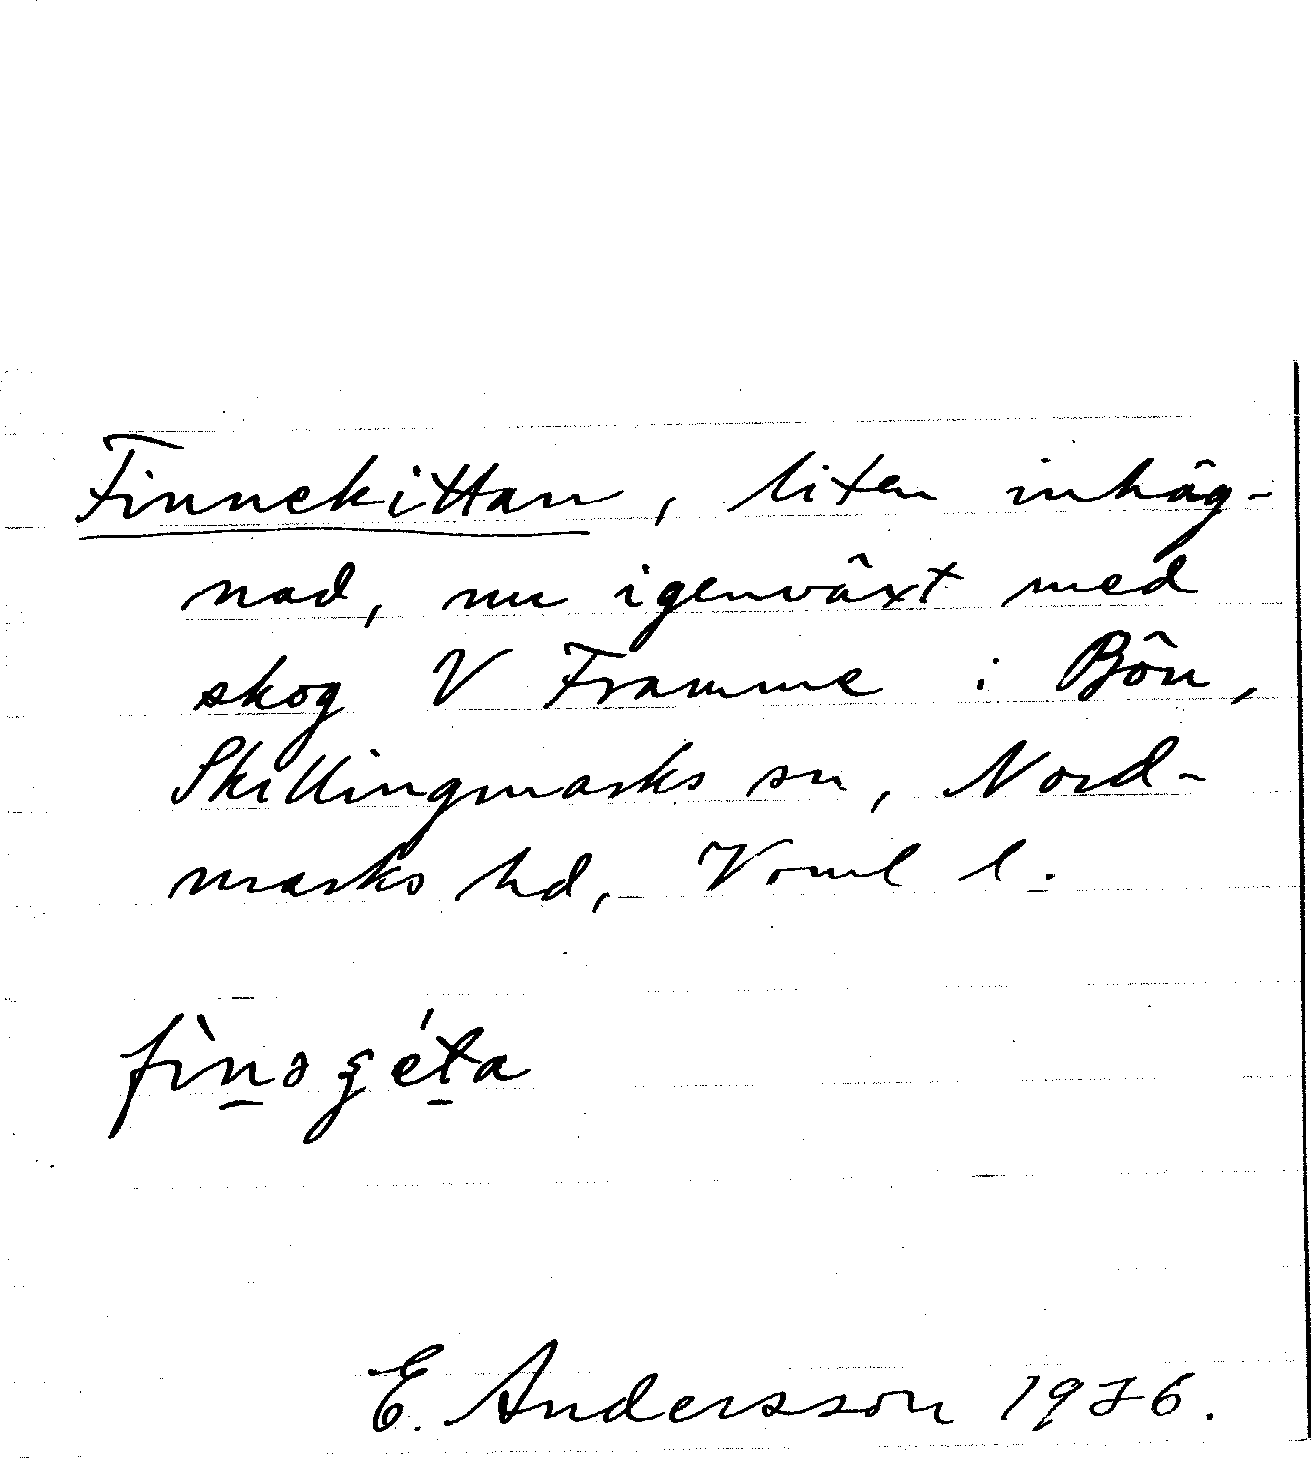 Finnekittan, liten inhäg-
nad, nu igenväxt med
skog V Framme i Bön,
Skillingmarks sn, Nord-
marks hd, Vrml l.
fìnəgéta
E. Andersson 1976.